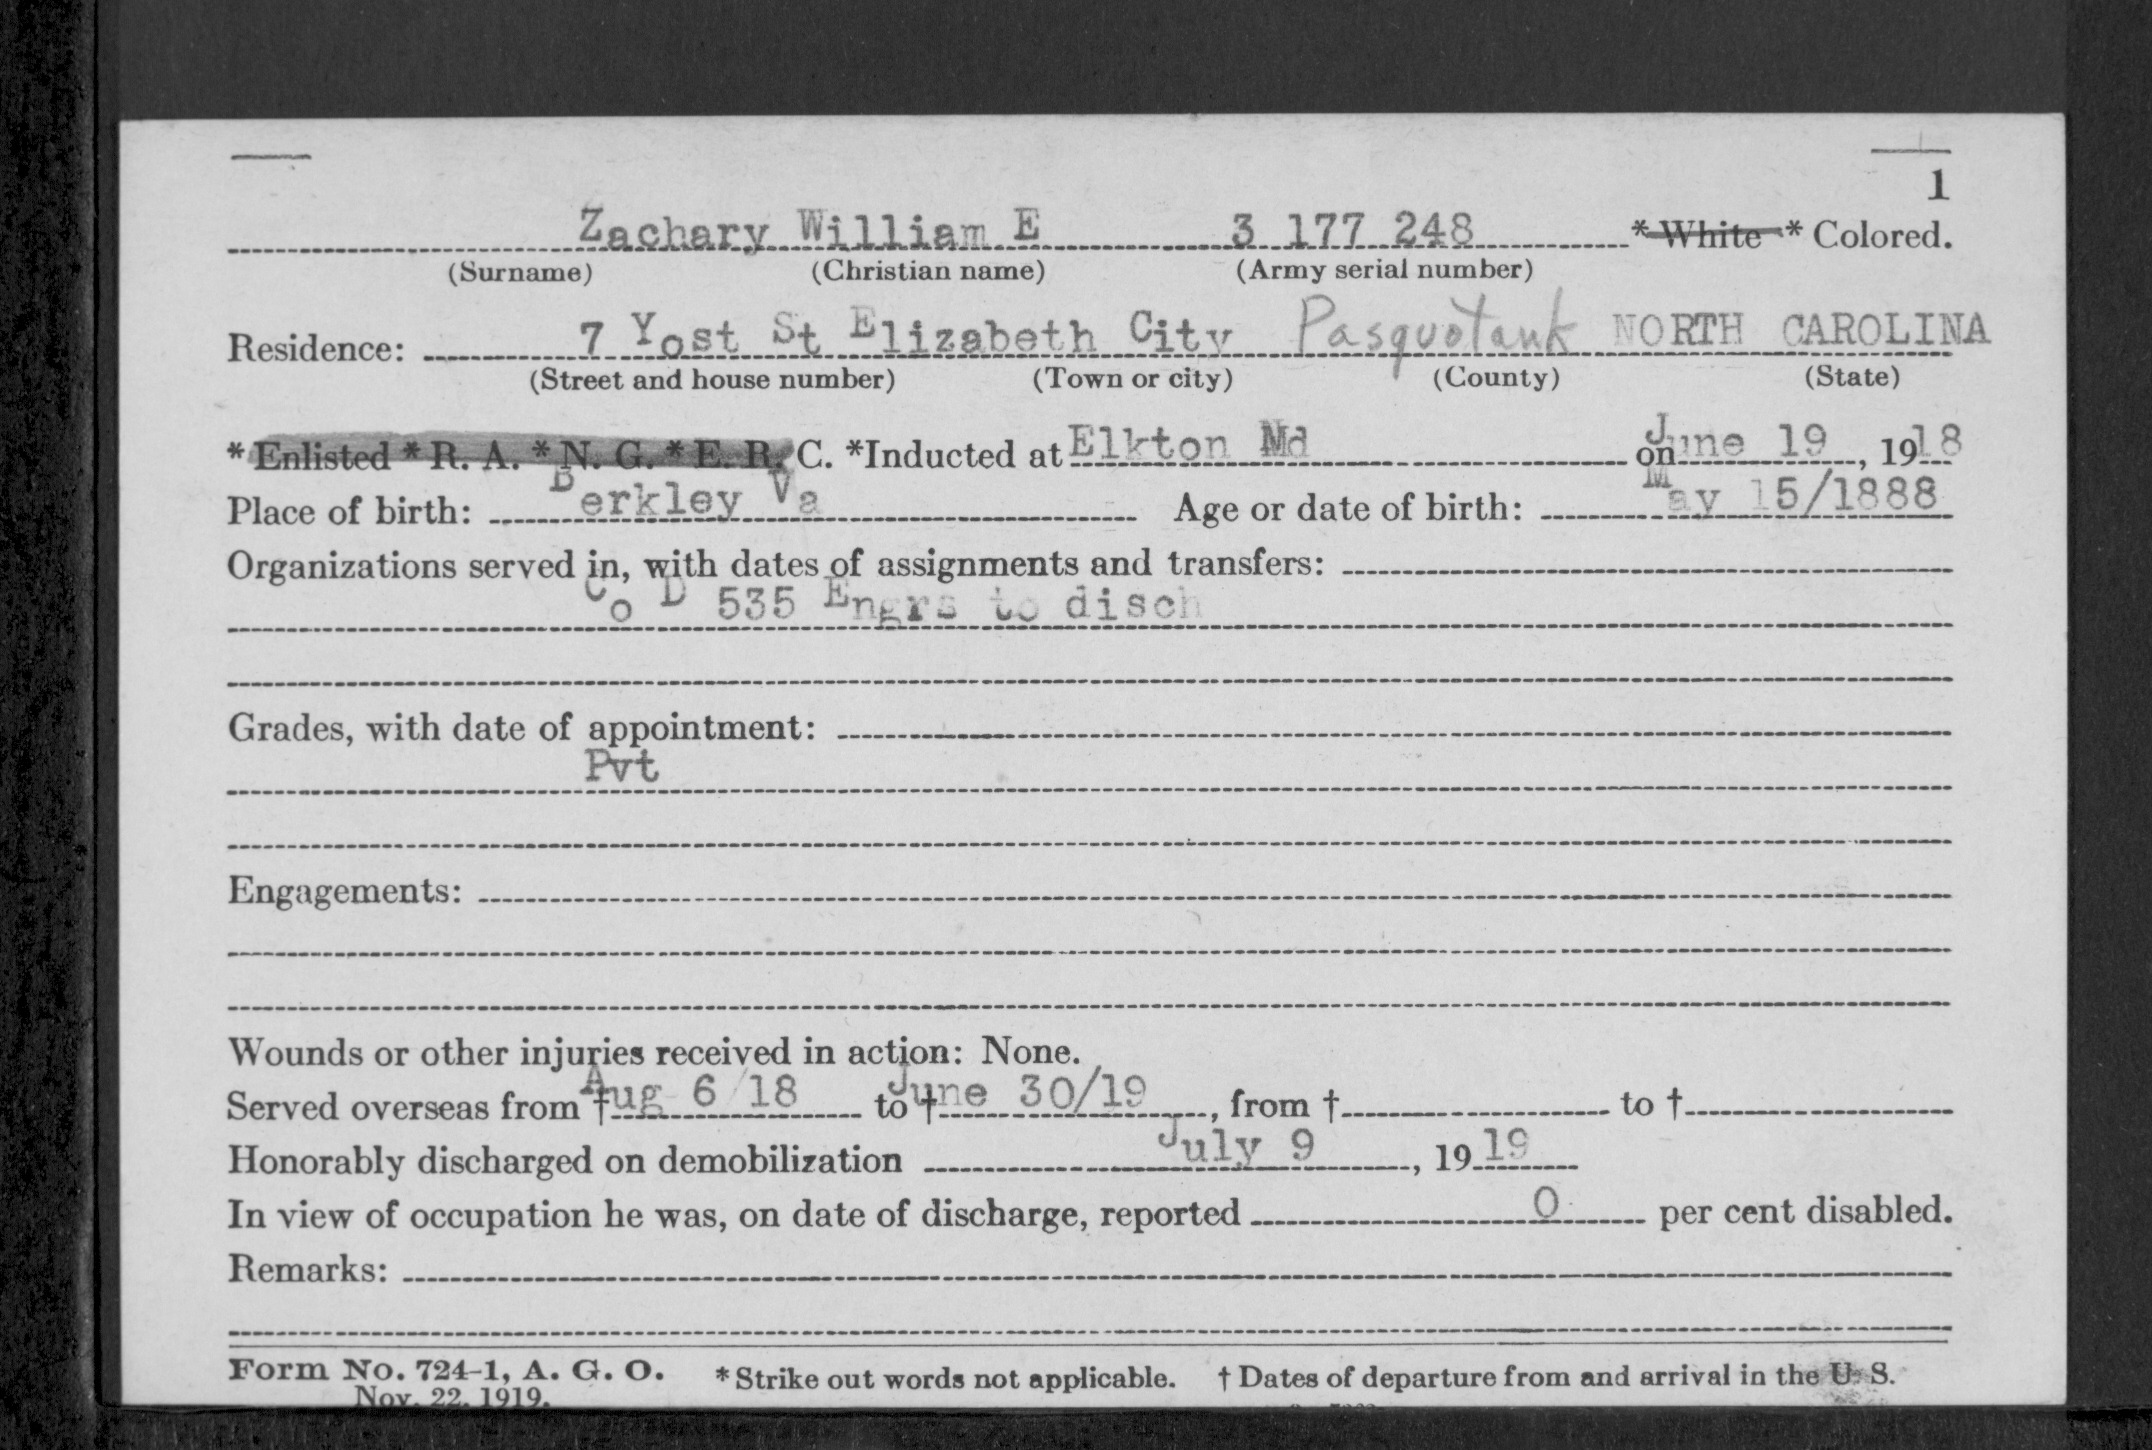 1
Zachary William E 3 177 248 * White * Colored.
(Surname) (Christian name) (Army serial number)
Residence: 7 Yost St Elizabeth City Pasquotank NORTH CAROLINA
(Street and house number) (Town or city) (County) (State)
* Enlisted * R. A. * N. G. * E. R. C. *Inducted at Elkton Md on June 19, 1918
Place of birth: Berkley Va Age or date of birth: May 15/1888
Organizations served in, with dates of assignments and transfers:
Co D 535 Engrs to disch
Grades, with date of appointment:
Pvt
Engagements:
Wounds or other injuries received in action: None.
Served overseas from † Aug 6/18 to † June 30/19, from † to †
Honorably discharged on demobilization July 9, 1919
In view of occupation he was, on date of discharge, reported 0 per cent disabled.
Remarks:
Form No. 724-1, A. G. O. * Strike out words not applicable. † Dates of departure from and arrival in the U. S.
Nov. 22, 1919.